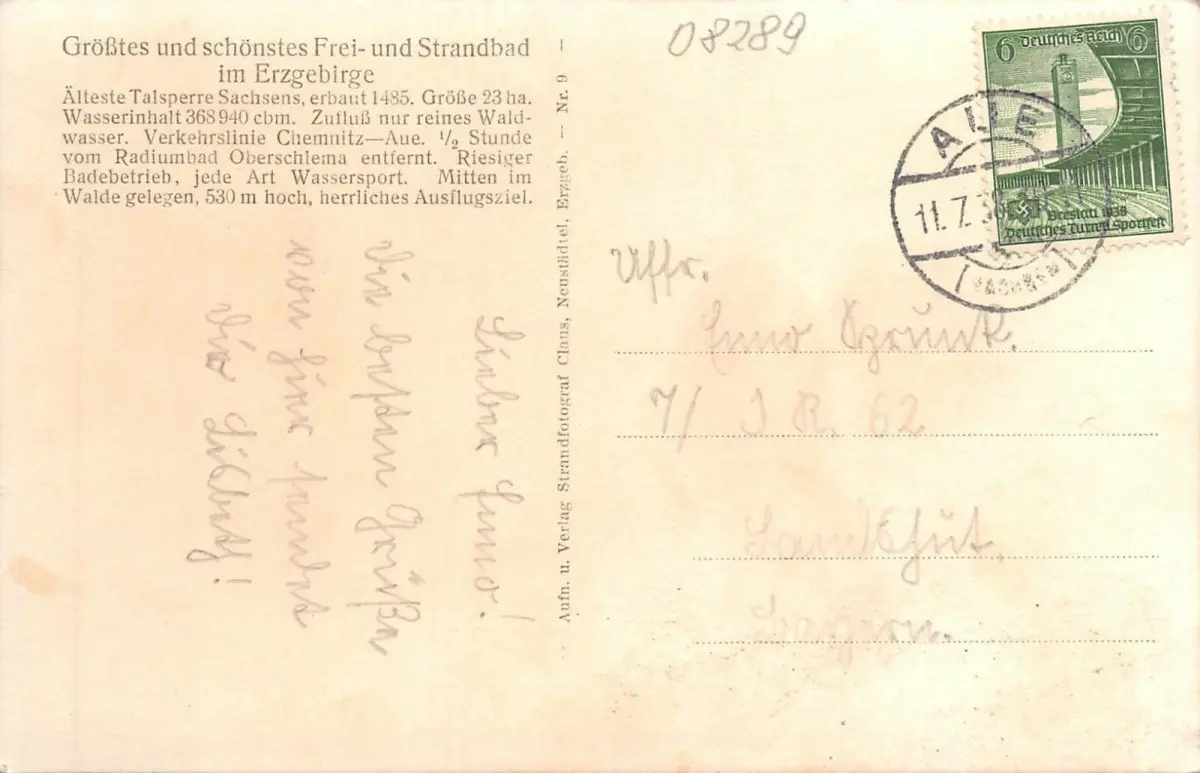 Größtes und schönstes Frei- und Strandbad
im Erzgebirge
Älteste Talsperre Sachsens, erbaut 1485. Größe 23 ha.
Wasserinhalt 368 940 cbm. Zufluß nur reines Wald-
wasser. Verkehrslinie Chemnitz—Aue. ½ Stunde
vom Radiumbad Oberschlema entfernt. Riesiger
Badebetrieb, jede Art Wassersport. Mitten im
Walde gelegen, 530 m hoch, herrliches Ausflugsziel.
Lieber Hanno!
Die besten Grüße
von hier sendet
Dir
Aufn. u. Verlag Strandfotograf Claus, Neustädtel, Erzgeb. — Nr. 9
08289
6 Deutsches Reich 6
Breslau 1938
Deutsches Turn u. Sportfest
AUE
11.7.38
(SACHSEN)
Uffr.
7/ I R. 62
Landshut,
Bayern.